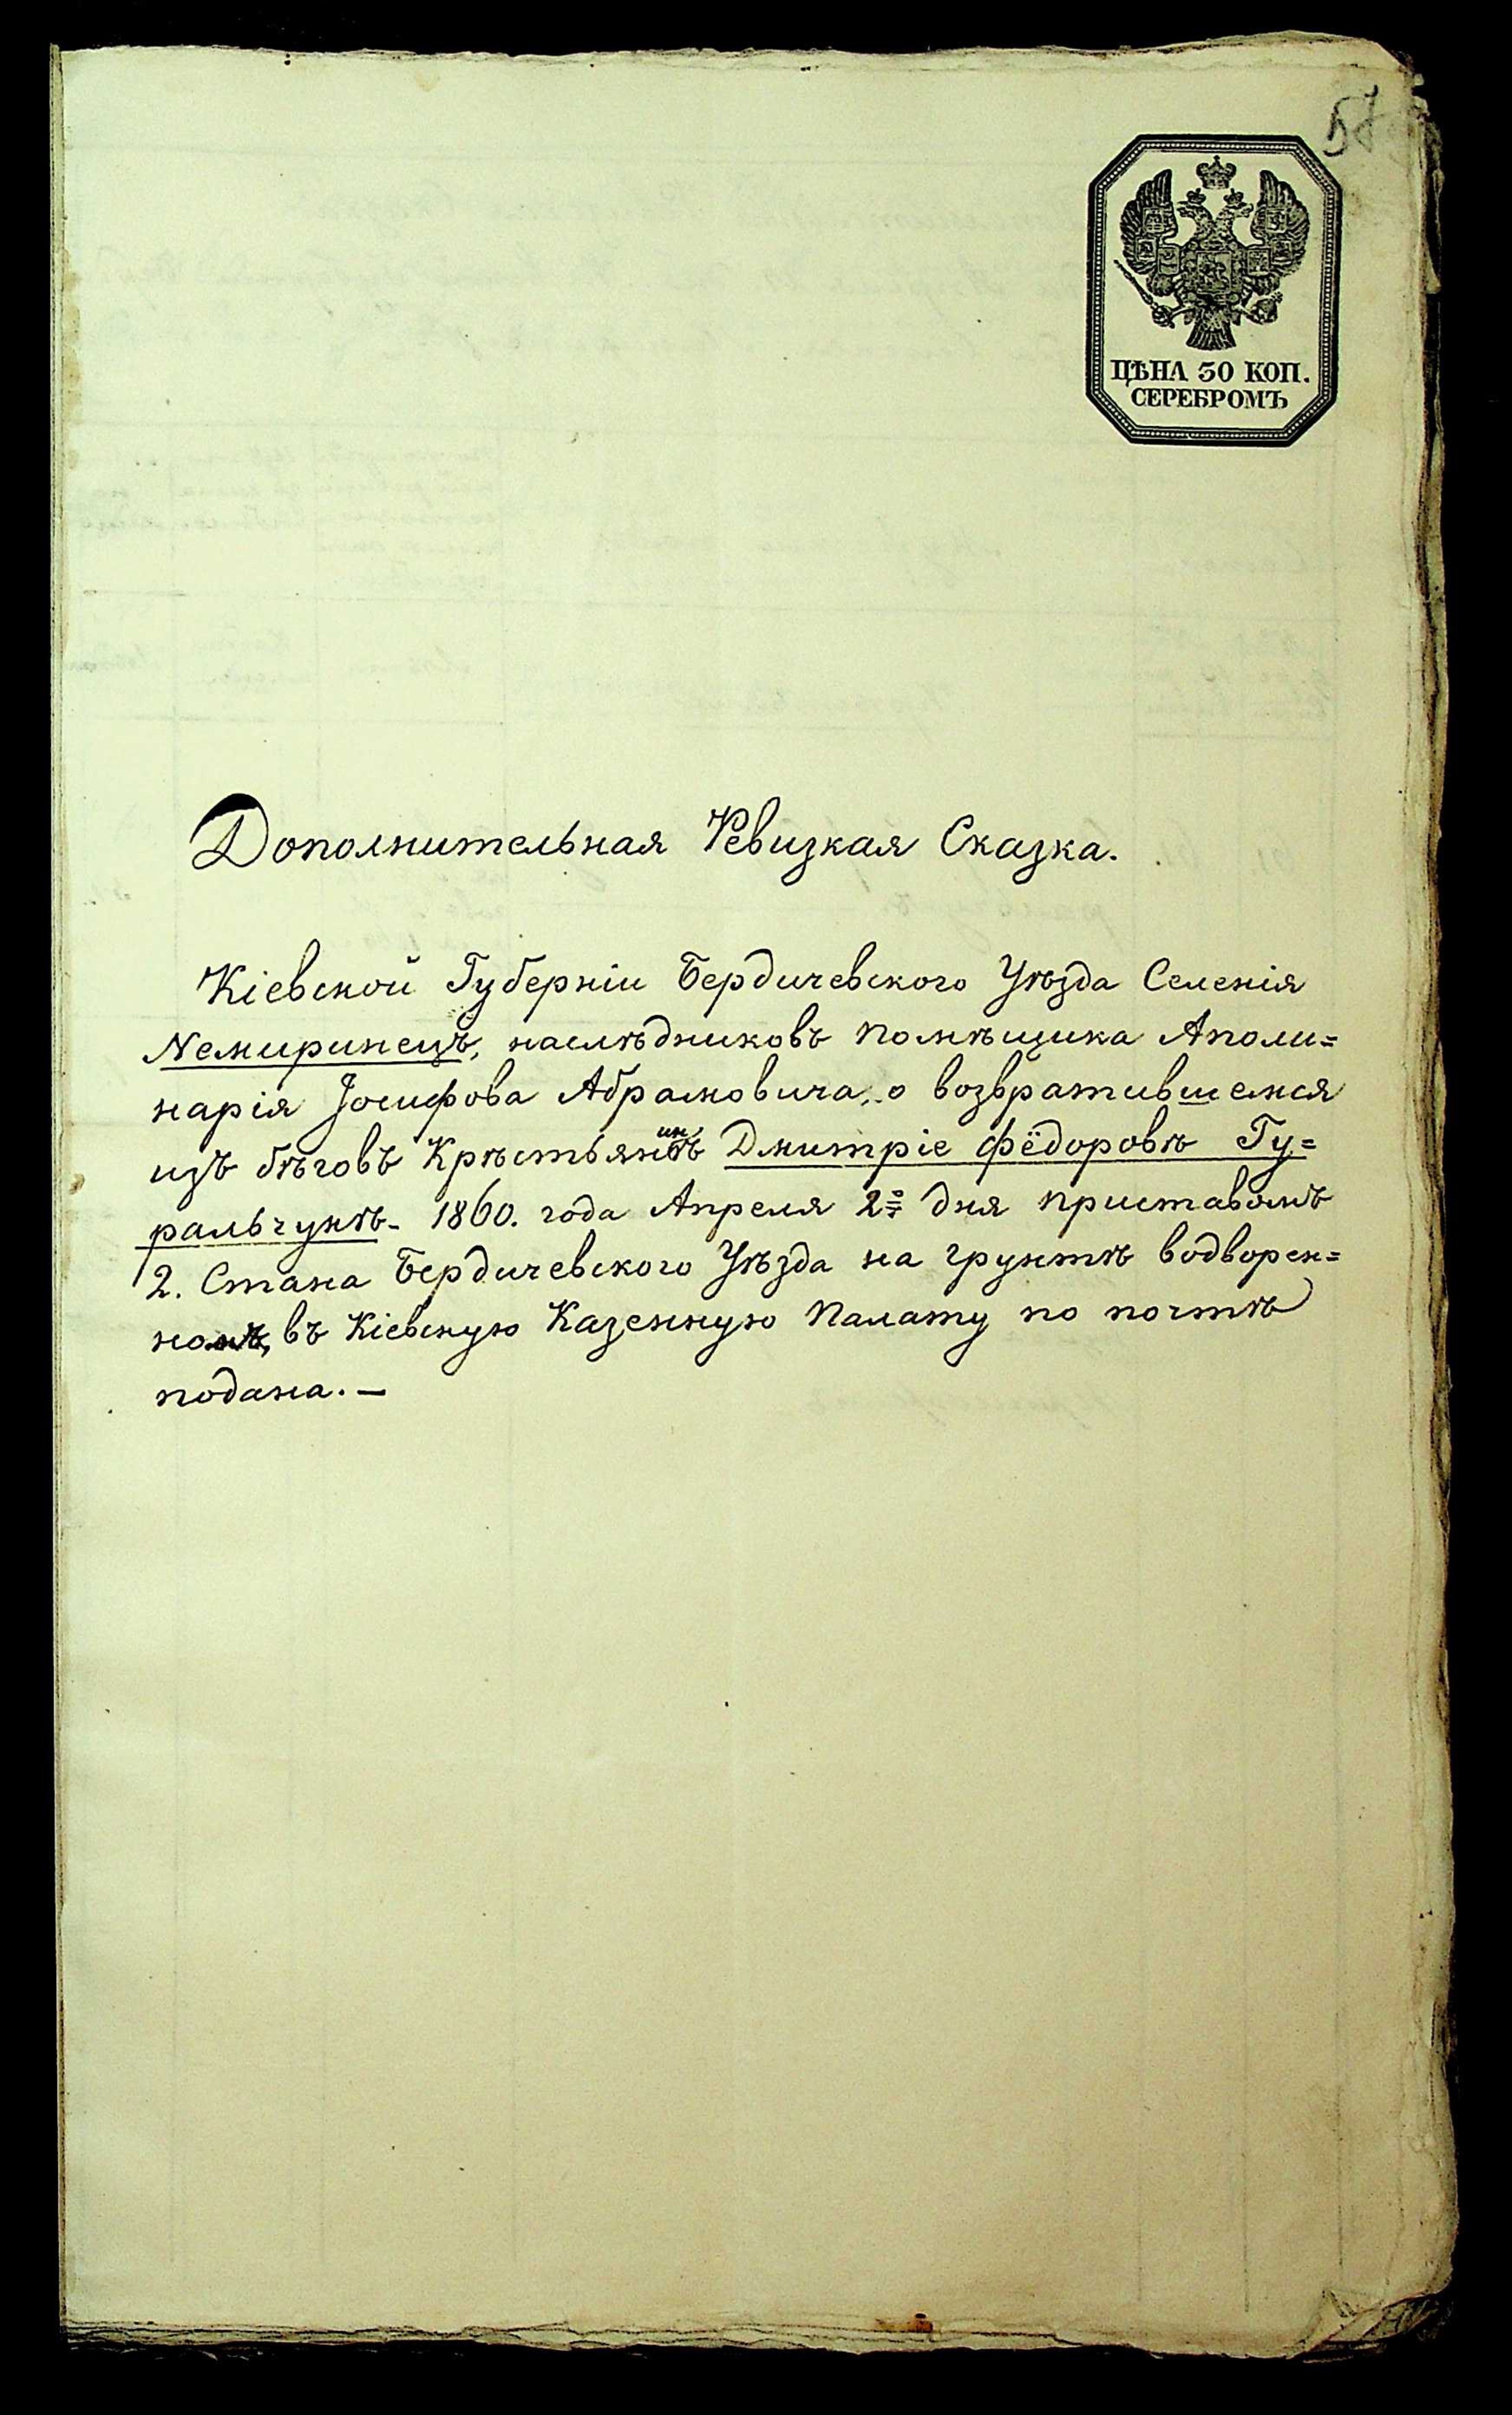 58
ЦѢНА 30 КОП.
СЕРЕБРОМЪ
Дополнительная Ревизкая Сказка.
Кіевской Губерніи Бердичевского Уѣзда Селенія
Немиринецъ, наслѣдниковъ помѣщика Аполи=
нарія Іосифова Абрамовича, о возвратившемся
изъ бѣговъ Крѣстьянинѣ Дмитріе Фёдоровѣ Гу=
ральчукѣ. 1860. года Апреля 2го дня приставомъ
2. Стана Бердичевского Уѣзда на грунтѣ водворен=
номъ, въ Кіевскую Казенную Палату по почтѣ
подана. —